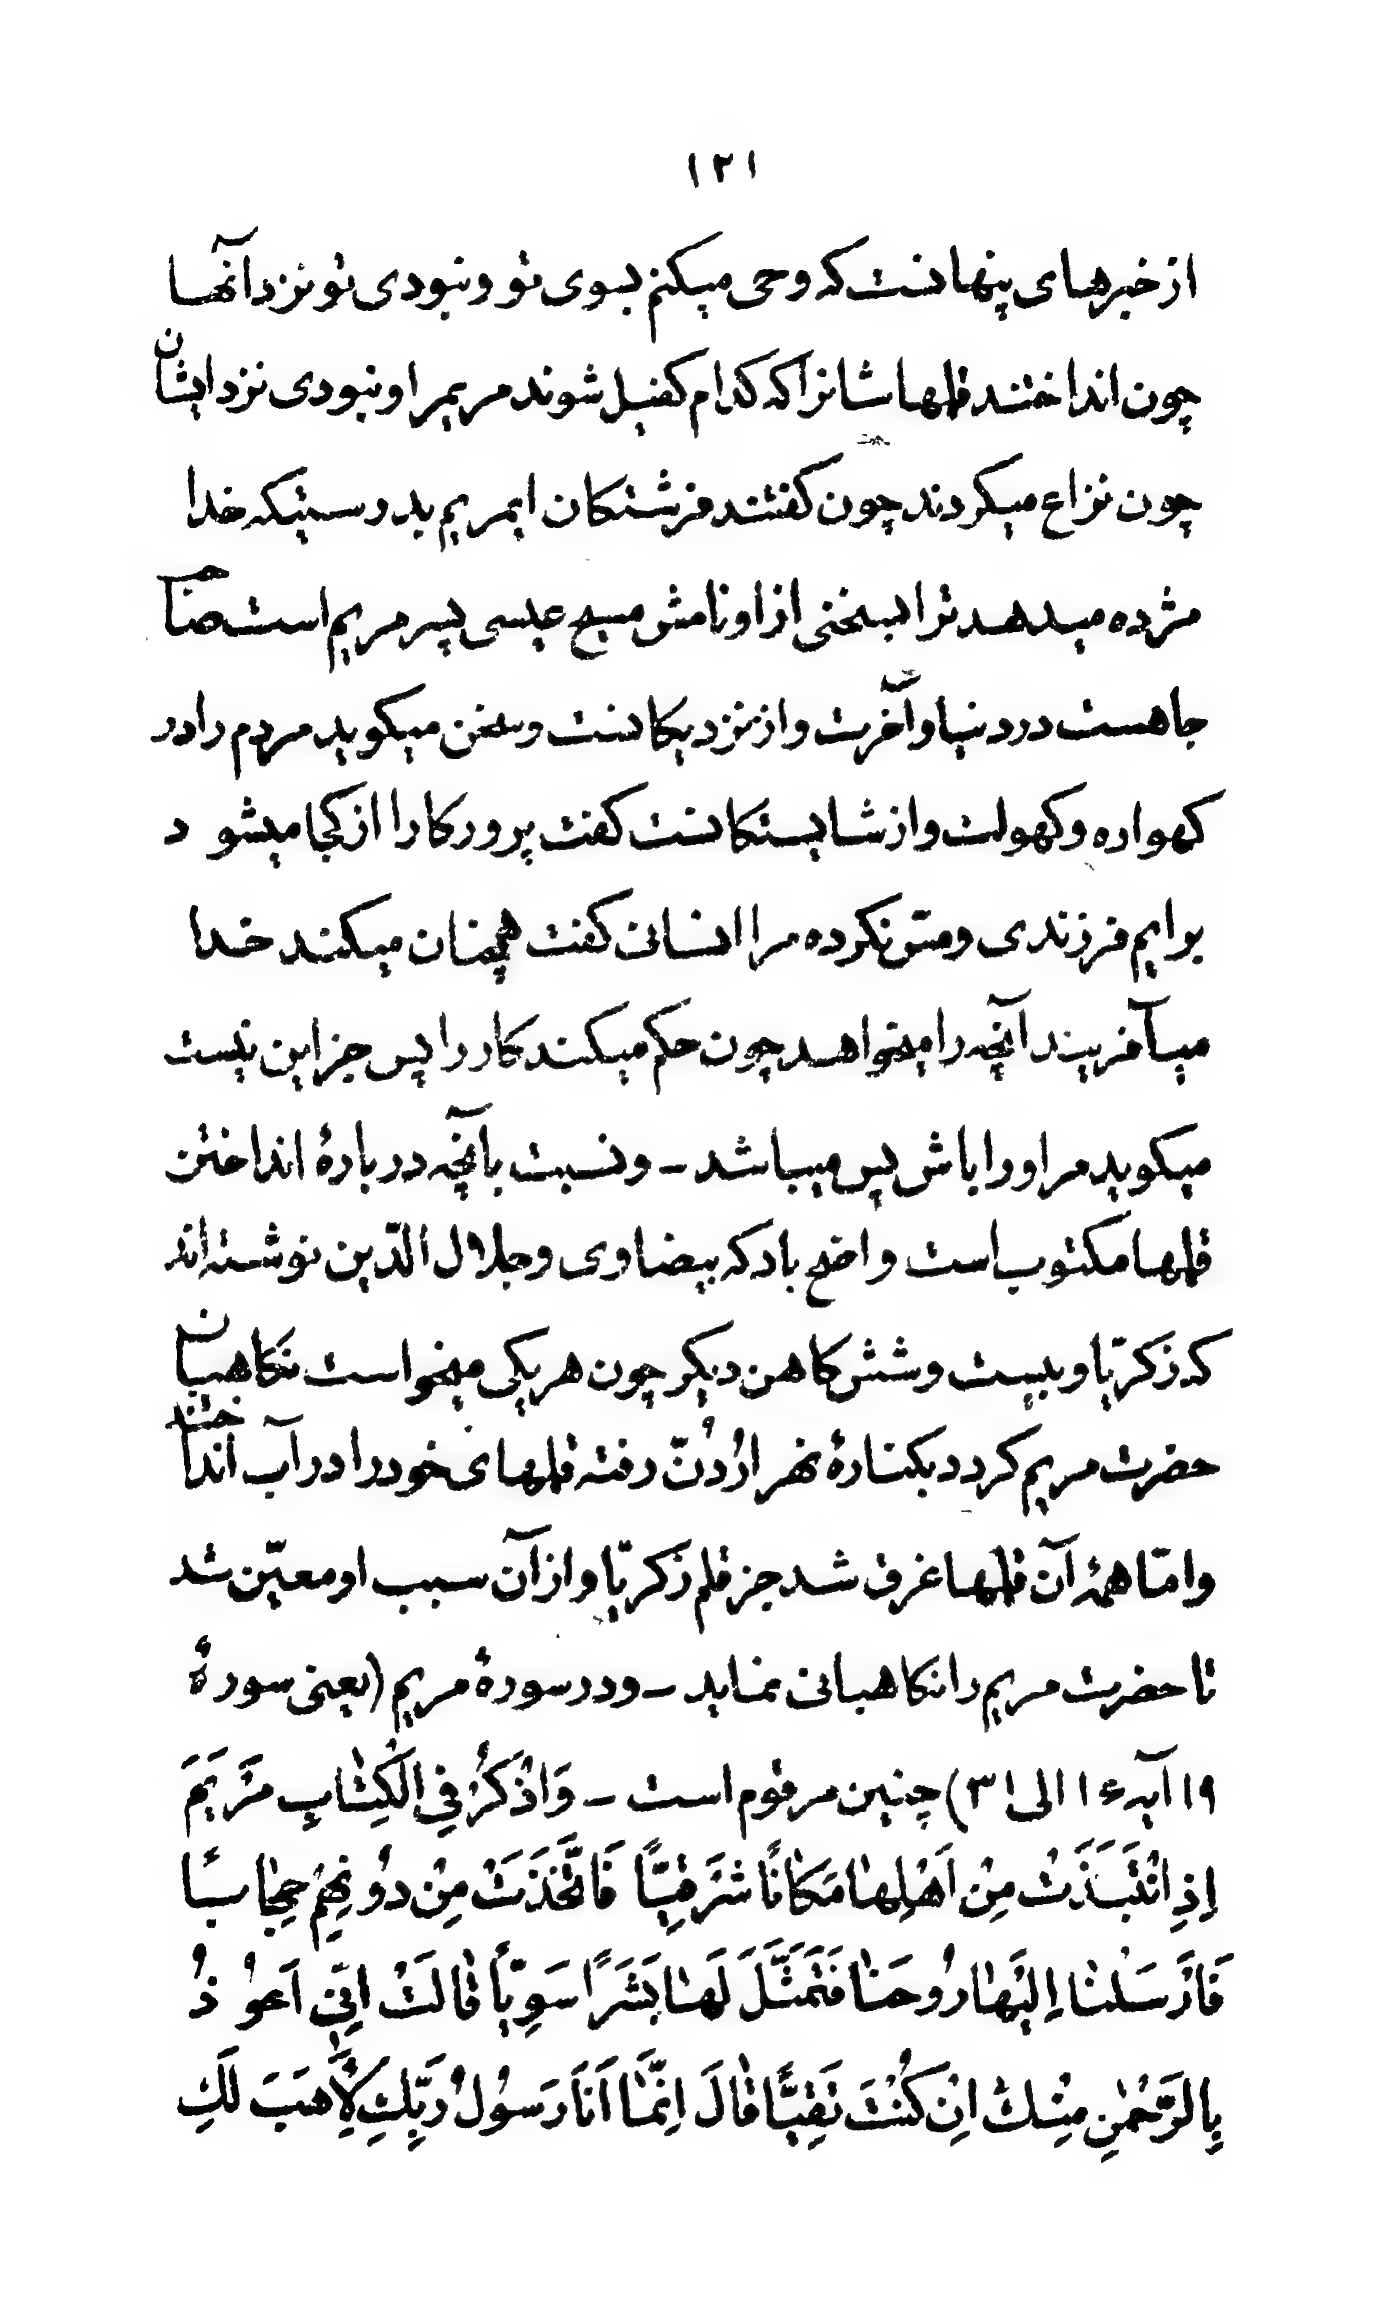 ۱۲۱
از خبرهای پنهانست که وحی میکنم بسوی تو و نبودی تو نزد آنها
چون انداختند قلمهاشانرا که کدام کفیل شوند مریمرا و نبودی نزد ایشان
چون نزاع میکردند چون کفتند فرشتکان ایمریم بدرستیکه خدا
مژده میدهد ترا بسخنی از او نامش مسیح عیسی پسر مریم است صاحب
جاهست در دنیا و آخرت و از نزدیکانست و سخن میکوید مردم را در
کهواره و کهولت و از شایستکانست کفت پرورکارا از کجا میشو د
برایم فرزندی و مس نکرده مرا انسانی کفت همچنان میکند خدا
میآفریند آنچه را میخواهد چون حکم میکند کار را پس جز این نیست
میکوید مر او را باش پس میباشد – و نسبت بآنچه دربارهٔ انداختن
قلمها مکتوب است واضح باد که بیضاوی و جلال الدّین نوشته اند
که زکریّا و بیست و شش کاهن دیکر چون هر یکی میخواست نکاهبان
حضرت مریم کردد بکنارهٔ نهر اُردُنّ رفته قلمهای خود را در آب انداختند
و امّا همهٔ آن قلمها غرق شد جز قلم زکریّا و از آن سبب او معیّن شد
تا حضرت مریم را نکاهبانی نماید – و در سورهٔ مریم (یعنی سورهٔ
۱۹ آیه ۱۶ الی ۳۱) چنین مرقوم است – وَاذْكُرْ فِي الْكِتٰابِ مَرْيَمَ
اِذِ انْتَبَذَتْ مِنْ اَهْلِهٰا مَكٰانًا شَرْقِيًّا فَاتَّخَذَتْ مِنْ دُونِهِمْ حِجٰابًا
فَاَرْسَلْنٰا اِلَيْهٰا رُوحَنٰا فَتَمَثَّلَ لَهٰا بَشَرًا سَوِيًّا قٰالَتْ اِنّٖي اَعُوْ ذُ
بِالرَّحْمٰنِ مِنْكَ اِنْ كُنْتَ تَقِيًّا قٰالَ اِنَّمٰا اَنَا رَسُولُ رَبِّكِ لِاَهَبَ لَكِ